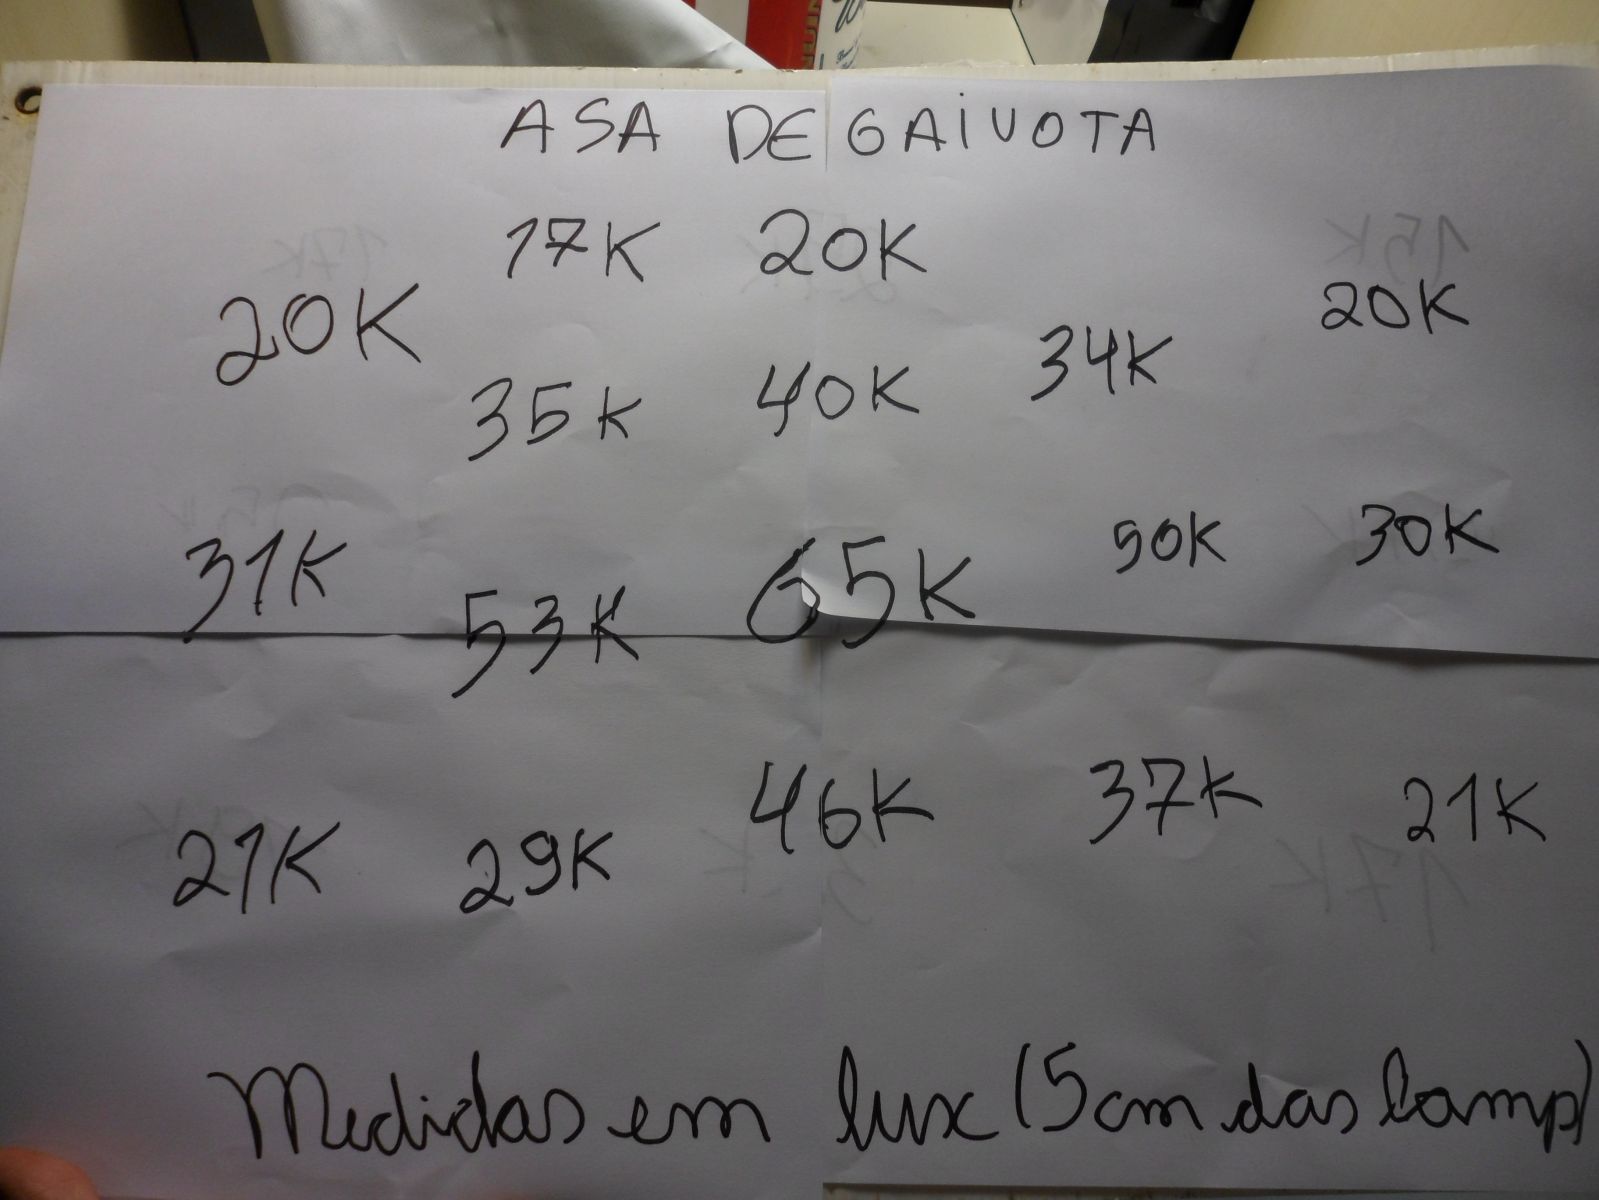 ASA DE GAIVOTA
17K 20K
20K 34K 20K
35K 40K
31K 53K 65K 50K 30K
21K 29K 46K 37K 21K
Medidas em lux (5cm das lamp)